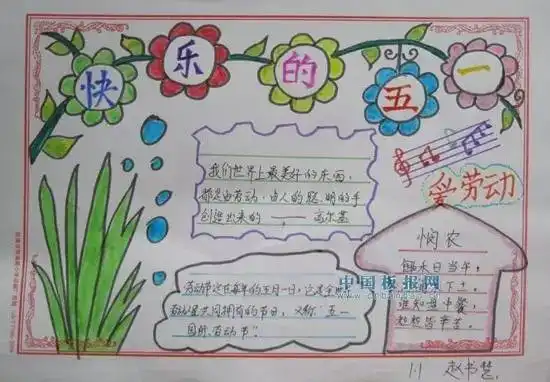 快乐的五一
我们世界上最美好的东西,
都是由劳动,由人的聪明的手
创造出来的 —— 高尔基
爱劳动
悯农
锄禾日当午,
下土。
谁知盘中餐,
粒粒皆辛苦。
劳动节定在每年的五月一日,
共同拥有的节日,又称"五一
国际劳动节"。
中国板报网
1.1 赵书慧